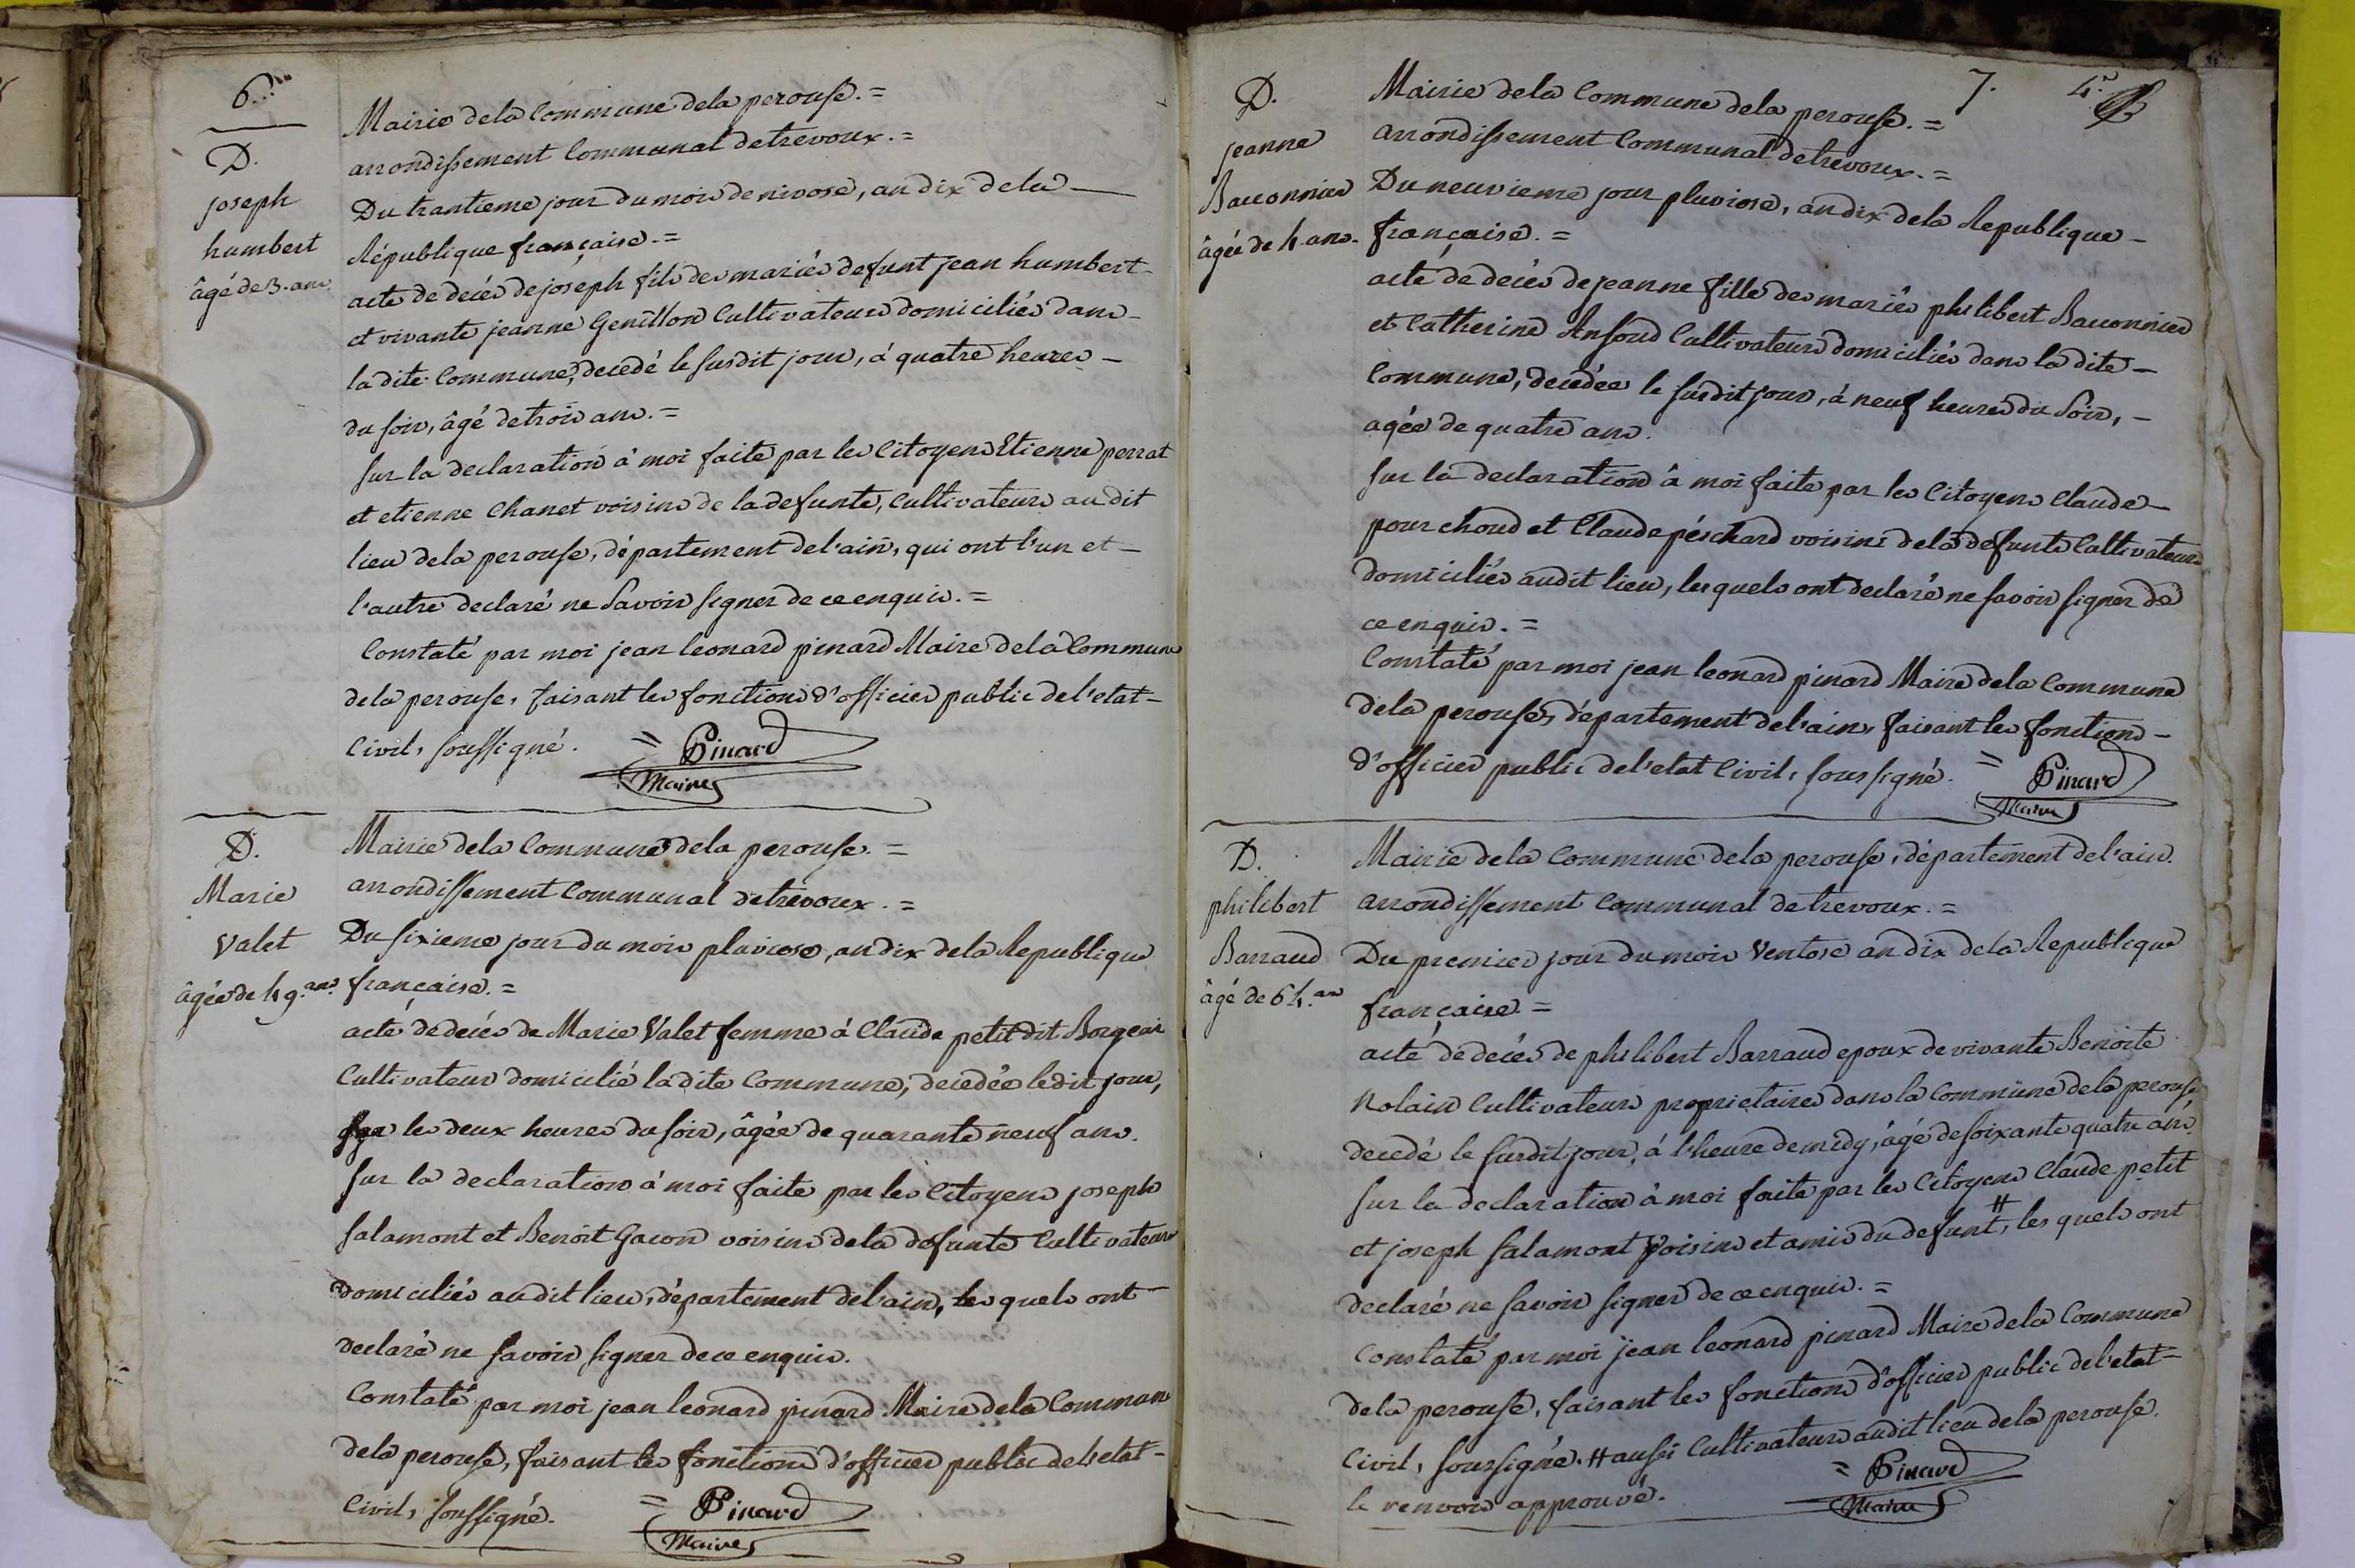 6.
D.
joseph
humbert
âgé de 3. ans.
Mairie dela Commune dela perouse. =
arrondissement Communal detrevoux. =
Du trantieme jour du mois de nivose, an dix dela
République française. =
acte de decés de joseph fils des mariés defunt jean humbert
et vivante jeanne Genillon Cultivateurs domiciliés dans
la dite Commune, decedé le susdit jour, à quatre heures
du soir, âgé detrois ans. =
sur la declaration à moi faite par les Citoyens Etienne perrat
et etienne Chanet voisins de la defunte, Cultivateurs au dit
lieu dela perouse, département del'ain, qui ont l'un et
l'autre declaré ne Savoir signer de ce enquis. =
Constaté par moi jean leonard pinard Maire dela Commune
dela perouse, faisant les fonctions d'officier public del'etat
Civil, soussigné. = Pinard
Maire
D.
Marie
Valet
âgée de 49. ans.
Mairie dela Commune dela perouse. =
arrondissement Communal detrevoux. =
Du sixieme jour du mois pluviose, an dix dela Republique
française. =
acte de decés de Marie Valet femme à Claude petit dit Borgeais
Cultivateur domicilié ladite Commune, decedée ledit jour,
les deux heures du soir, âgée de quarante neuf ans.
sur la declaration à moi faite par les Citoyens joseph
salamont et Benoit Gacon voisins dela defunte Cultivateurs
domiciliés au dit lieu, département del'ain, les quels ont
declaré ne savoir signer de ce enquis.
Constaté par moi jean leonard pinard Maire dela Commune
dela perouse, faisant les fonctions d'officier public del'etat
Civil, soussigné. = Pinard
Maire
7. 4.
D.
jeanne
Bauonnier
âgée de 4. ans.
Mairie dela Commune dela perouse. =
arrondissement Communal detrevoux. =
Du neuvieme jour pluviose, an dix dela Republique
française. =
acte de decés de jeanne fille des mariés philibert Bauonnier
et Catherine Ansoud Cultivateurs domiciliés dans la dite
Commune, decedée le susdit jour, à neuf heures du Soir,
agée de quatre ans.
sur la declaration à moi faite par les Citoyens Claude
pourchoud et Claude péschard voisins dela defunte Cultivateurs
domiciliés audit lieu, lesquels ont declaré ne savoir signer de
ce enquis. =
Constaté par moi jean leonard pinard Maire dela Commune
dela perouse, département del'ain, faisant les fonctions
d'officier public del'etat Civil, soussigné. = Pinard
Maire
D.
philibert
Barraud
âgé de 64. ans
Mairie dela Commune dela perouse, département del'ain.
arrondissement Communal de trevoux. =
Du premier jour du mois Ventose an dix dela Republique
française =
acte de decés de philibert Barraud epoux de vivante Benoite
Rolain Cultivateurs proprietaires dans la Commune dela perouse,
decedé le susdit jour, à l'heure de midy, âgé de soixante quatre ans.
sur la declaration à moi faite par les Citoyens Claude petit
et joseph salamont voisins et amis du defunt, # les quels ont
declaré ne savoir signer de ce enquis. =
Constaté par moi jean leonard pinard Maire dela Commune
dela perouse, faisant les fonctions d'officier public del'etat
Civil, soussigné. # aussi Cultivateurs audit lieu dela perouse.
le renvois approuvé. = Pinard
Maire